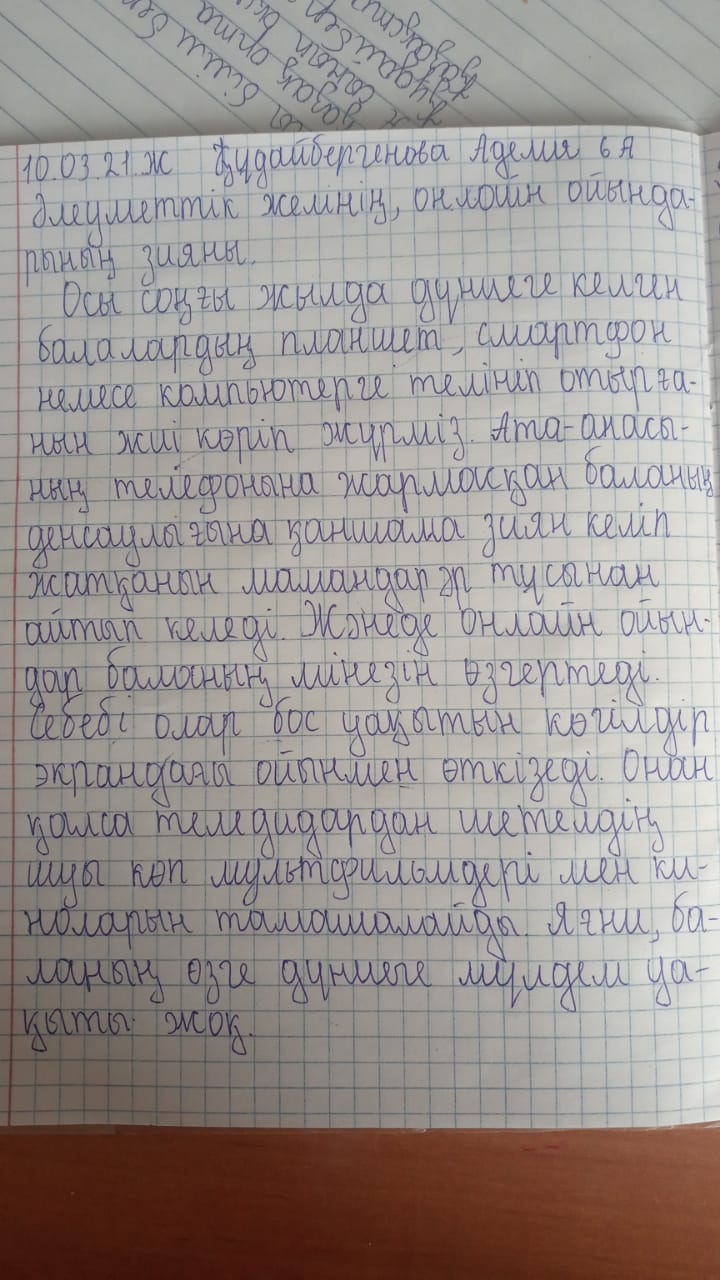 10.03.21.ж Құдайбергенова Аделия 6 А
Әлеуметтік желінің, онлайн ойында-
рының зияны.
Осы соңғы жылда дүниеге келген
балалардың планшет, смартфон
немесе компьютерге телініп отырға-
нын жиі көріп жүрміз. Ата-анасы-
ның телефонына жармасқан баланың
денсаулығына қаншама зиян келіп
жатқанын мамандар әр тұсынан
айтып келеді. Жәнеде онлайн ойын-
дар баланың мінезін өзгертеді.
Себебі олар бос уақытын көгілдір
экрандағы ойынмен өткізеді. Онан
қалса теледидардан шетелдің
шуы көп мультфильмдері мен ки-
ноларын тамашалайды. Яғни, ба-
ланың өзге дүниеге мүлдем уа-
қыты жоқ.